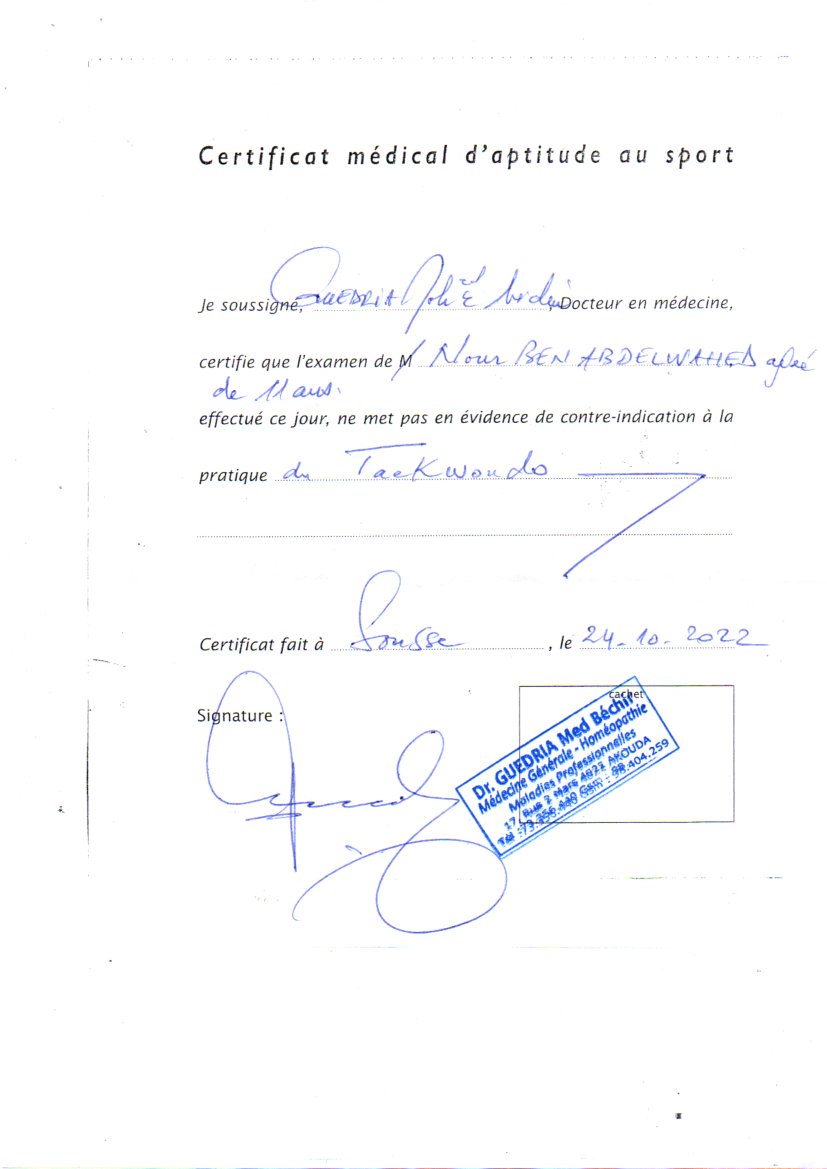 Certificat médical d'aptitude au sport
Je soussigné, GUEDRIA , Docteur en médecine,
certifie que l'examen de M / Nour BEN ABDELWAHED
de 11 ans.
effectué ce jour, ne met pas en évidence de contre-indication à la
pratique du Taekwondo
Certificat fait à Sousse , le 24-10-2022
Signature :
cachet
Dr. GUEDRIA Med Béchir
Médecine Générale - Homéopathie
Maladies Professionnelles
17, Rue 2 Mars 4022 AKOUDA
Tél :73.356.